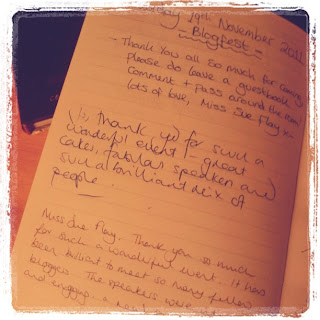 19th November 2011
- Blogfest -
- Thank You all so much for coming
please do leave a guestbook
comment + pass around the room
lots of love, Miss Sue Flay x
thank you for such a
wonderful event - great
cakes, fabulous speakers and
such a brilliant mix of
people.
Miss Sue Flay. Thank you so much
for such a wonderful event. It has
been brilliant to meet so many fellow
bloggers. The speakers were
and engaging, a